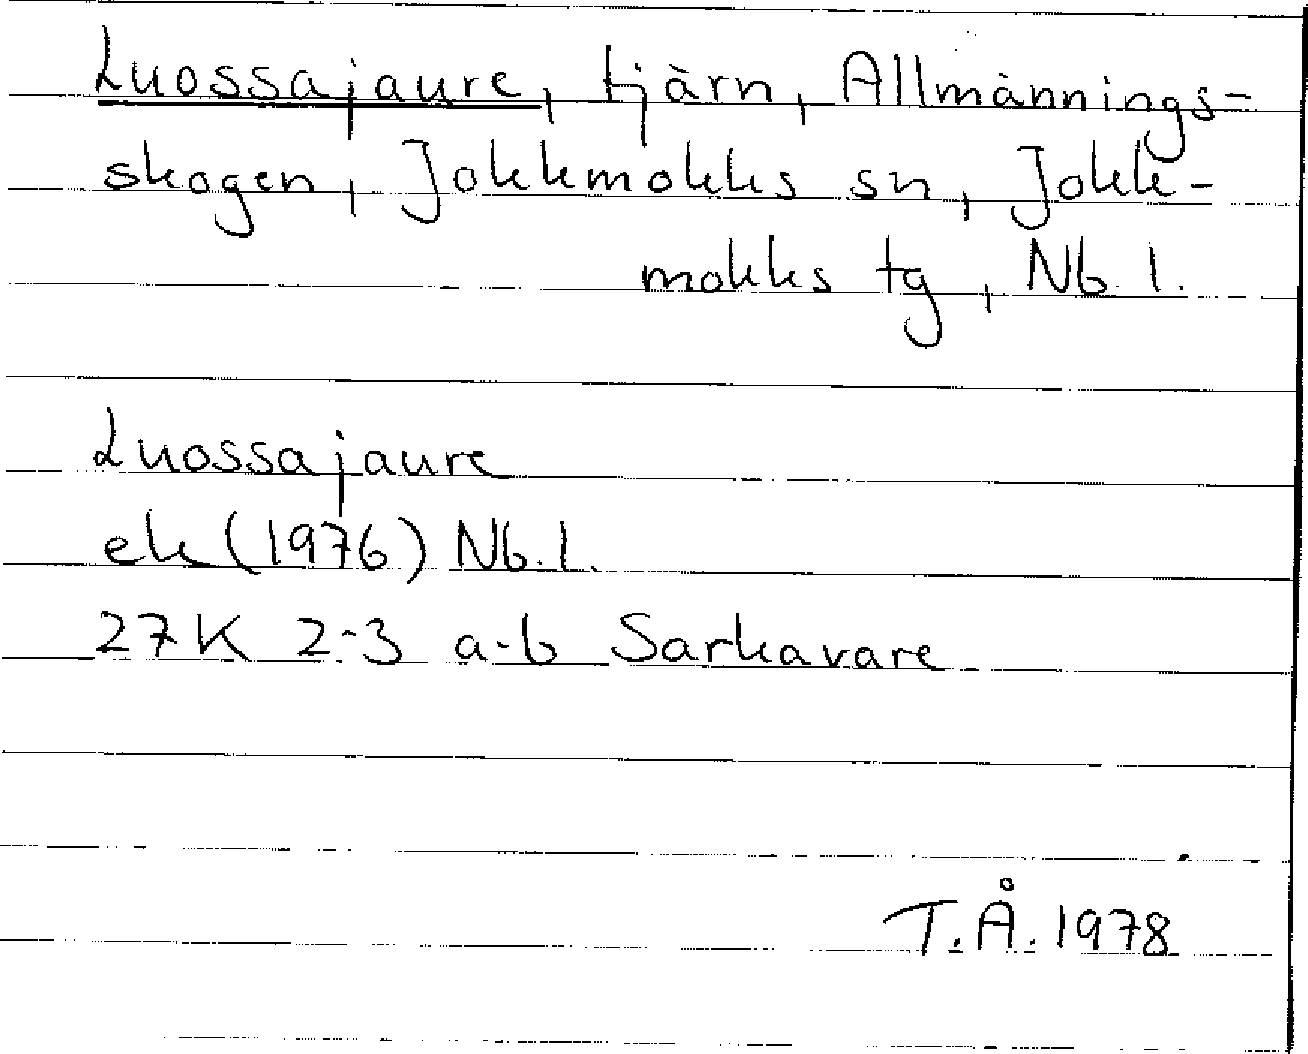 Luossajaure, tjärn, Allmännings-
skogen, Jokkmokks sn, Jokk-
mokks tg, Nb. l.
Luossajaure
ek (1976) Nb. l.
27K 2-3 a-b Sarkavare
T.Å. 1978